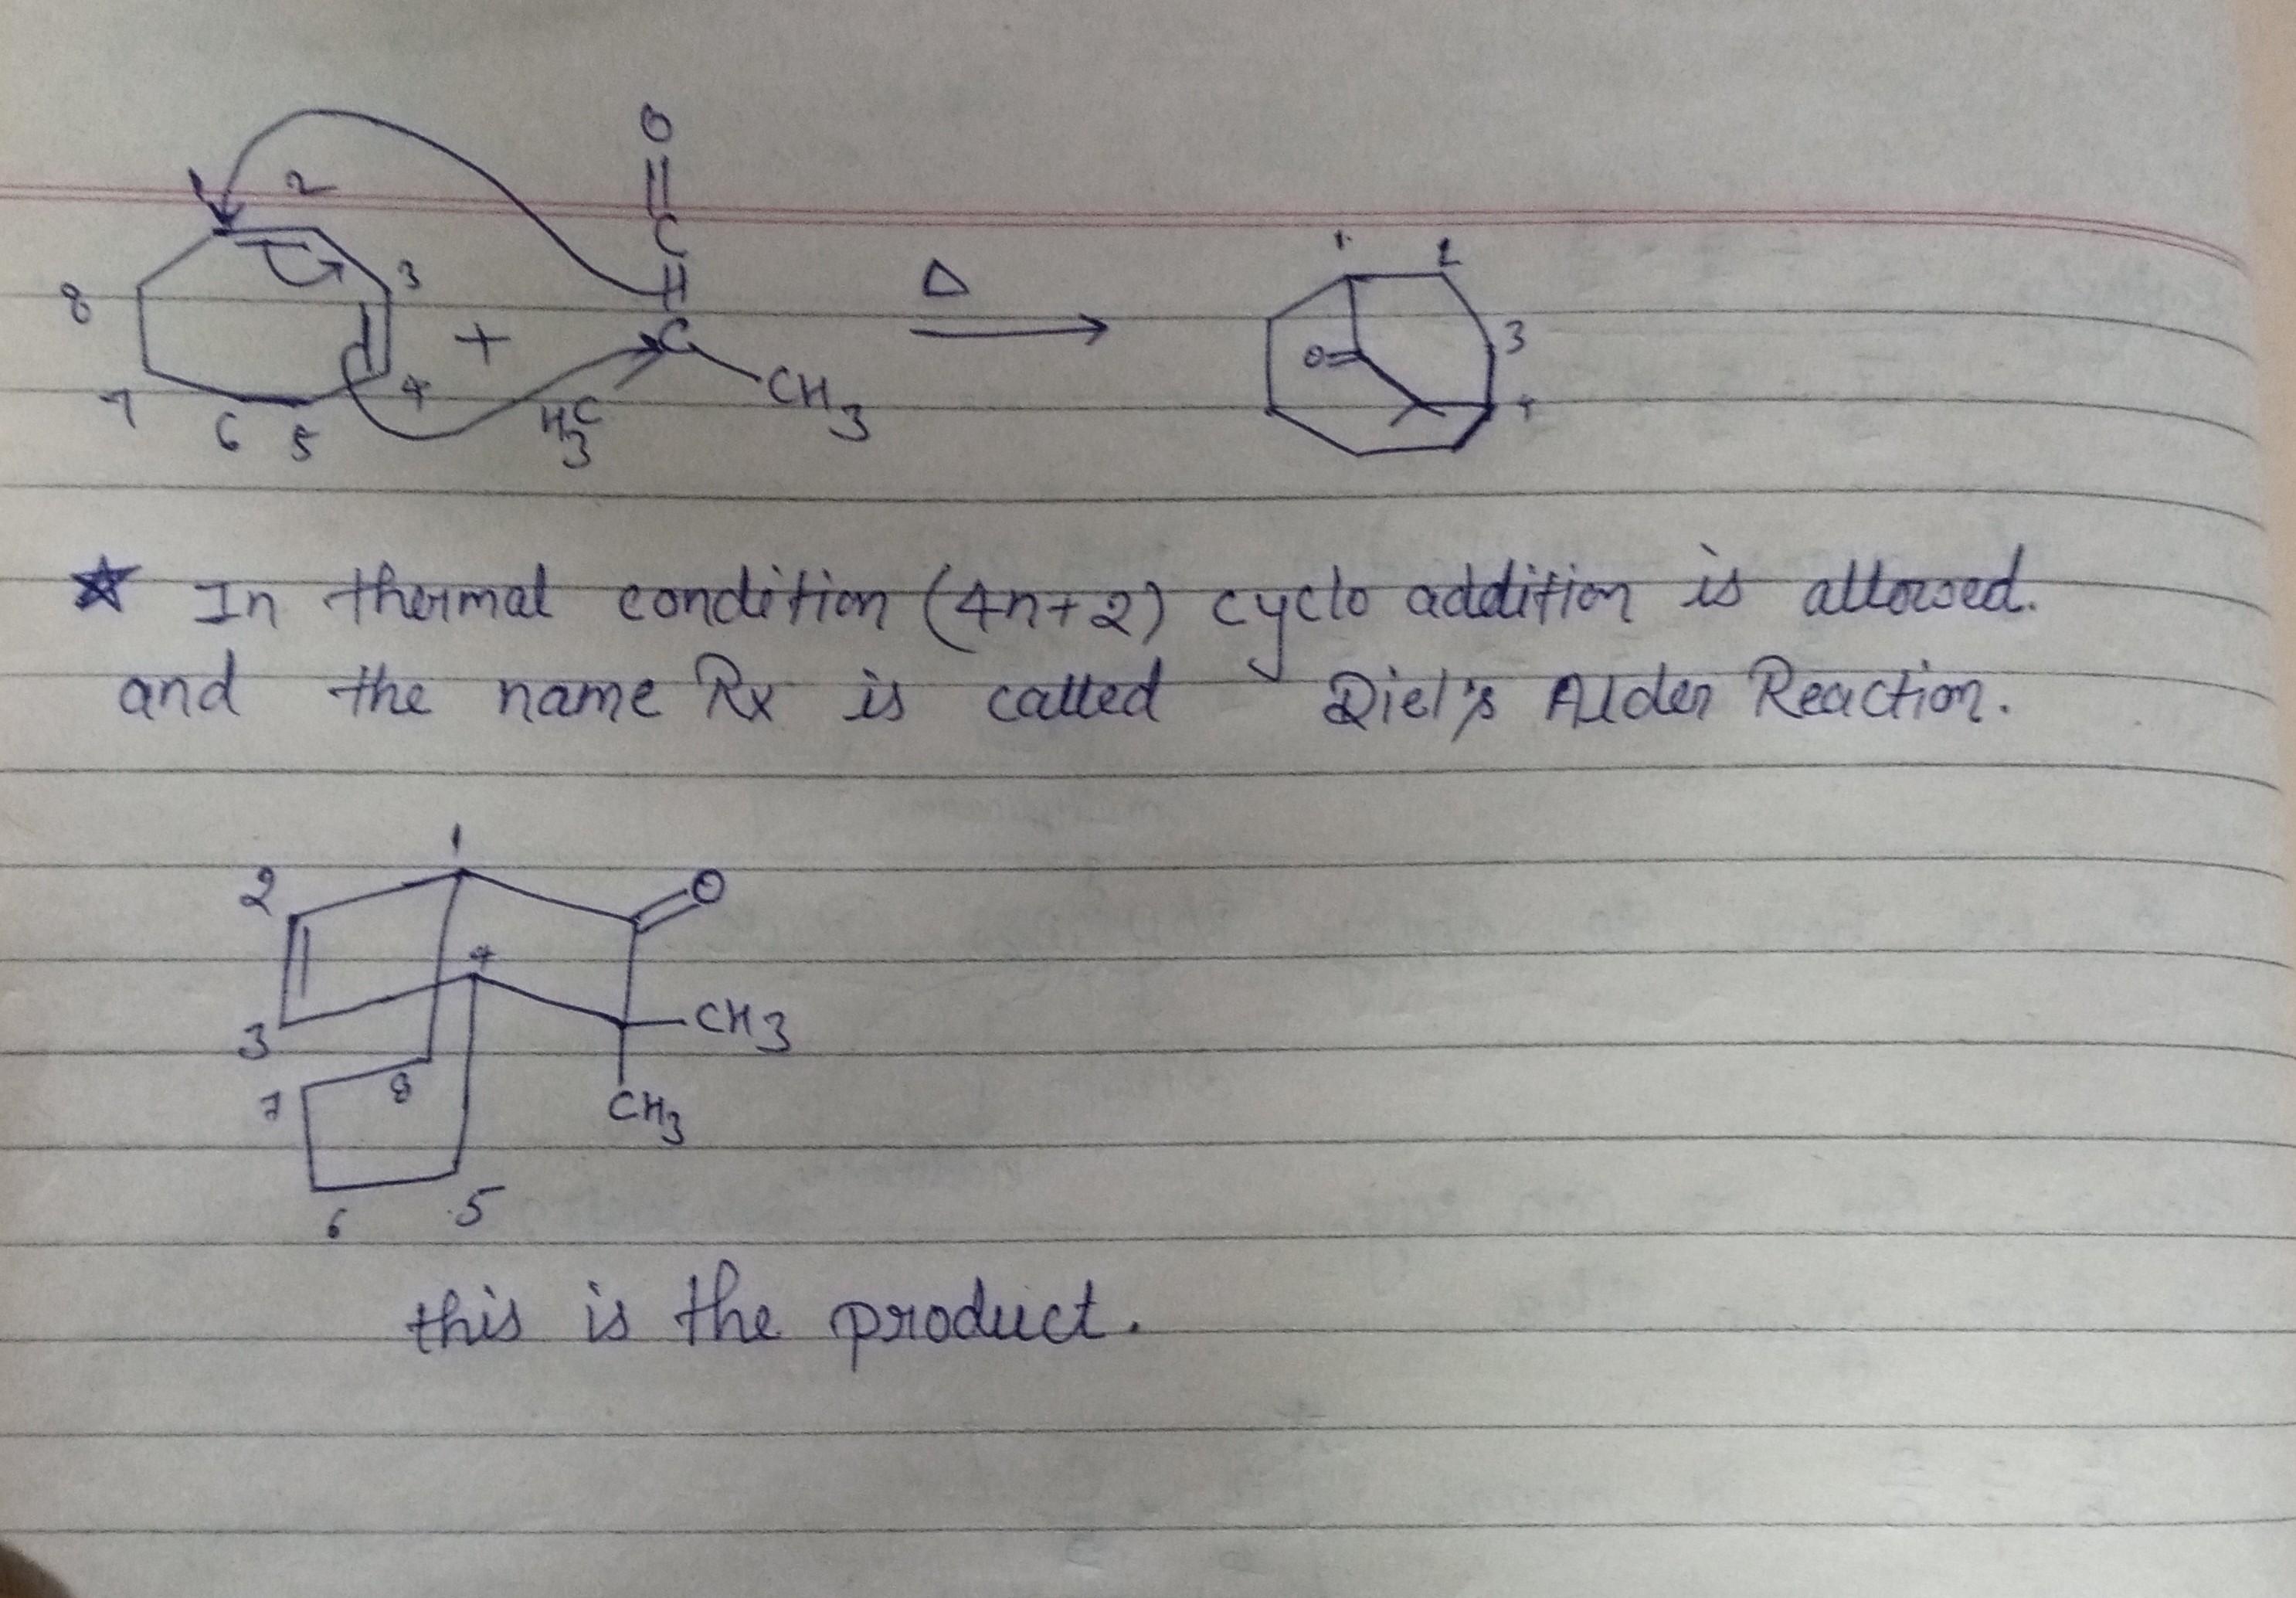 O
||
1 2 C
||
8 3 + C Δ
7 6 5 4 H3C CH3
1 2
O= 3
4
☆ In thermal condition (4n+2) cyclo addition is allowed.
and the name Rx is called Diel's Alder Reaction.
1
2 O
4
3 CH3
7 8 CH3
6 5
this is the product.